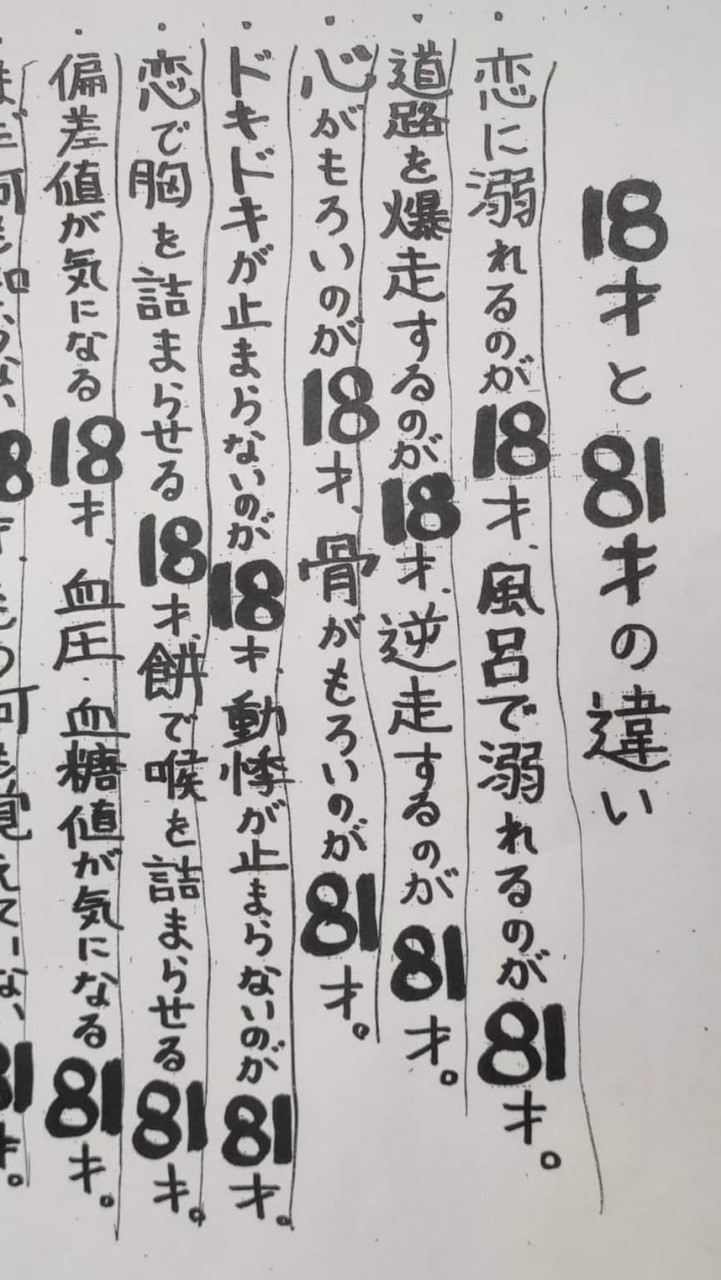 18才と81才の違い
・恋に溺れるのが18才、風呂で溺れるのが81才。
・道路を爆走するのが18才、逆走するのが81才。
・心がもろいのが18才、骨がもろいのが81才。
・ドキドキが止まらないのが18才、動悸が止まらないのが81才。
・恋で胸を詰まらせる18才、餅で喉を詰まらせる81才。
・偏差値が気になる18才、血圧・血糖値が気になる81才。